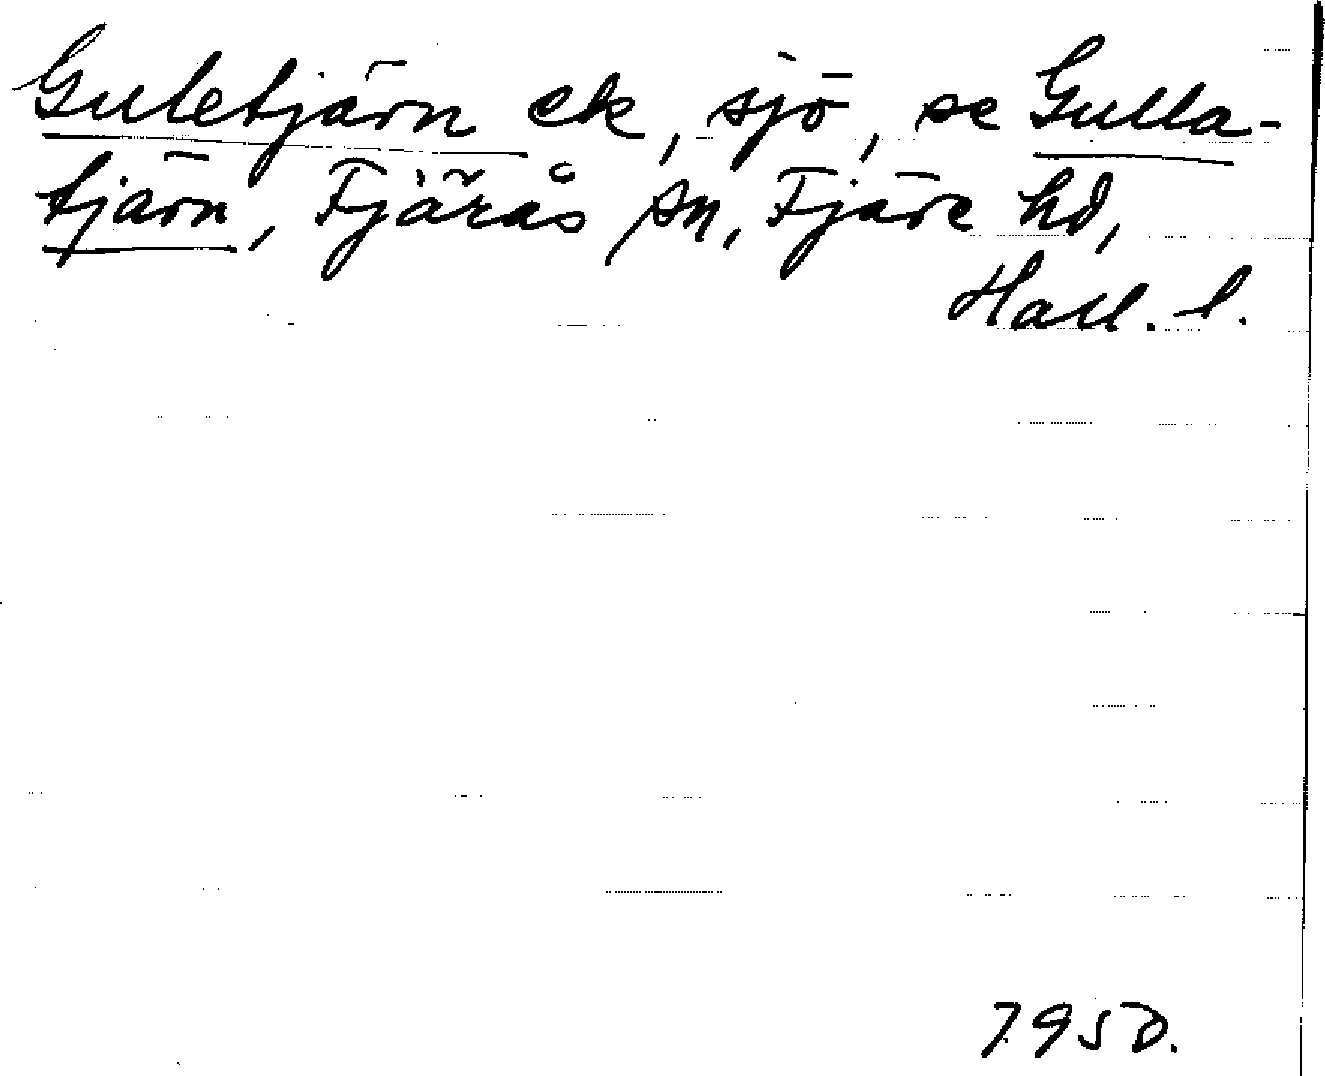 Guletjärn ek, sjö, se Gulla-
tjärn, Fjärås sn, Fjäre hd,
Hall. l.
7950.